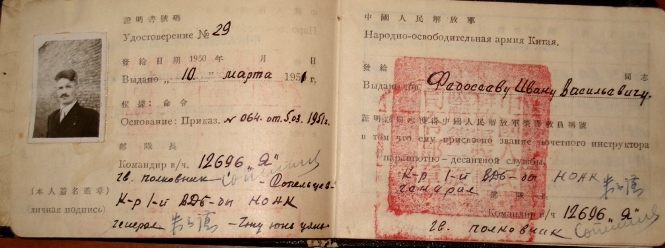 證明書號碼
Удостоверение № 29
發給日期 1950 年 月 日
Выдано „10" марта 1951 г.
根據: 命令
Основание: Приказ. № 064. от 5.03.1951г.
部隊長
Командир в/ч. 12696 „Я"
гв. полковник
(本人簽名蓋章)
К-р 1-й ВДБ-ды НОАК
(личная подпись)
генерал
中國人民解放軍
Народно-освободительная армия Китая.
發給 同志
Выдано Ивану Васильевичу.
в том что ему присвоено звание почетного инструктора
парашютно-десантной службы.
К-р 1-й ВДБ-ды НОАК
генерал
部隊長
Командир в/ч 12696 „Я"
гв. полковник